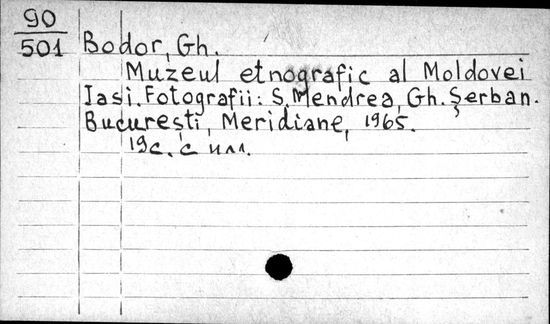 90
501
Bodor, Gh.
Muzeul etnografic al Moldovei
Iasi. Fotografii: S. Mendrea, Gh. Şerban.
Bucureşti, Meridiane, 1965.
19 с. с илл.